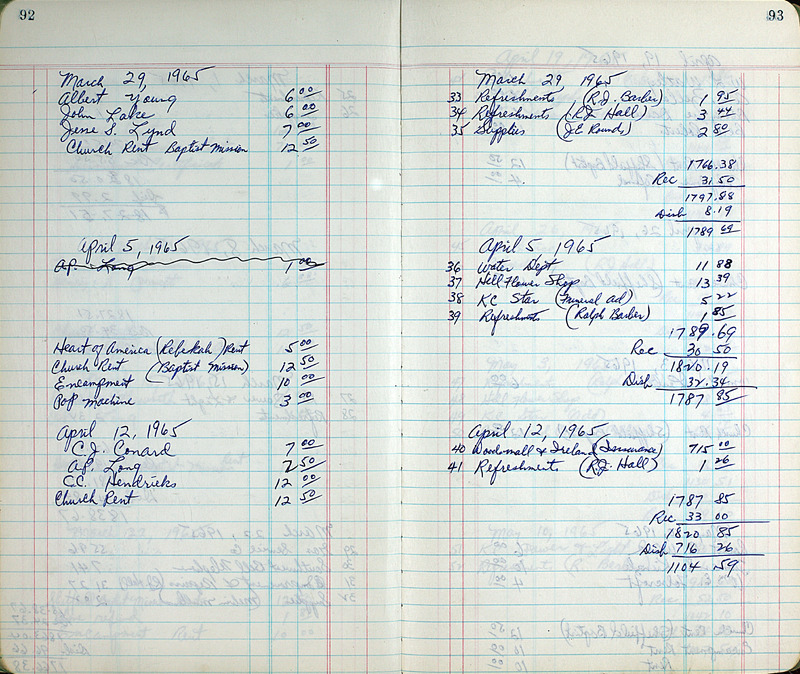 92
March 29, 1965
Albert Young 6 00
John Lake 6 00
Jesse S. Lynd 7 00
Church Rent Baptist Mission 12 50
April 5, 1965
A.P. Long 1 00
Heart of America (Rebekah) Rent 5 00
Church Rent (Baptist Mission) 12 50
Encampment 10 00
Pop Machine 3 00
April 12, 1965
C.J. Conard 7 00
A.P. Long 2 50
C.C. Hendricks 12 00
Church Rent 12 50
93
March 29, 1965
33 Refreshments (R.J. Barber) 1 95
34 Refreshments (R.J. Hall) 3 44
35 Supplies (J.E. Rounds) 2 80
1766.38
Rec 31.50
1797.88
Disb 8.19
1789 69
April 5, 1965
36 Water Dept 11 88
37 Hill Flower Shop 13 39
38 KC Star (Funeral ad) 5 22
39 Refreshments (Ralph Barber) 1 85
1789.69
Rec 30 50
1820.19
Disb 32.34
1787 85
April 12, 1965
40 Woodsmall & Ireland (Insurance) 715 00
41 Refreshments (R.J. Hall) 1 26
1787 85
Rec 33 00
1820 85
Disb 716 26
1104 59